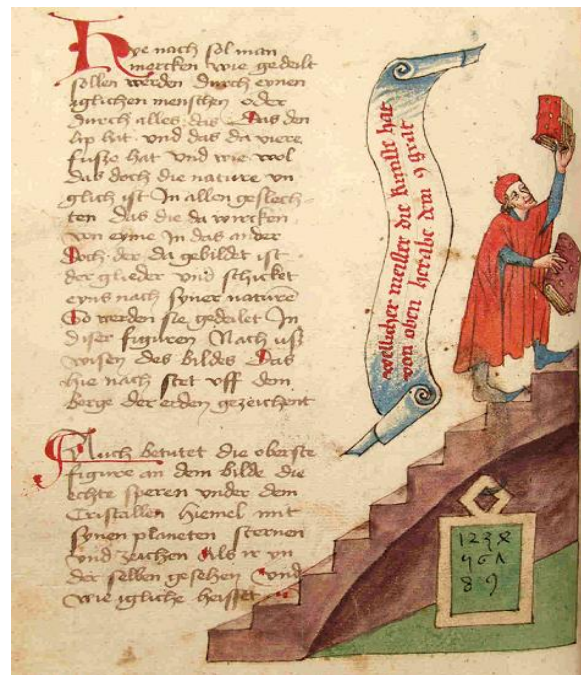 Hye nach sol man
mercken wie gedeilt
sollen werden durch eynen
iglichen menschen oder
durch alles das Das den
lip hat vnd das da viere
fusze hat Vnd wie wol
das doch die nature vn
glich ist In allen geslech-
ten Das die da wircken
von eyme In das ander
Doch der da gebildet ist
der glieder vnd schicket
eyns nach syner nature
So werden sie gedeilet In
diser figuren Nach usz
wisen des bildes Das
hie nach stet vff dem
berge der erden gezeichent
Auch betutet die oberste
figure an dem bilde die
echte speren vnder dem
Cristallen hiemel mit
synen planeten sternen
vnd zeichen Als ir yn
der selben gesehen Vnd
wie igliche heisset
wellicher meister die kunste hat
von oben herabe dem 9 grat
1 2 3 4
5 6 7
8 9